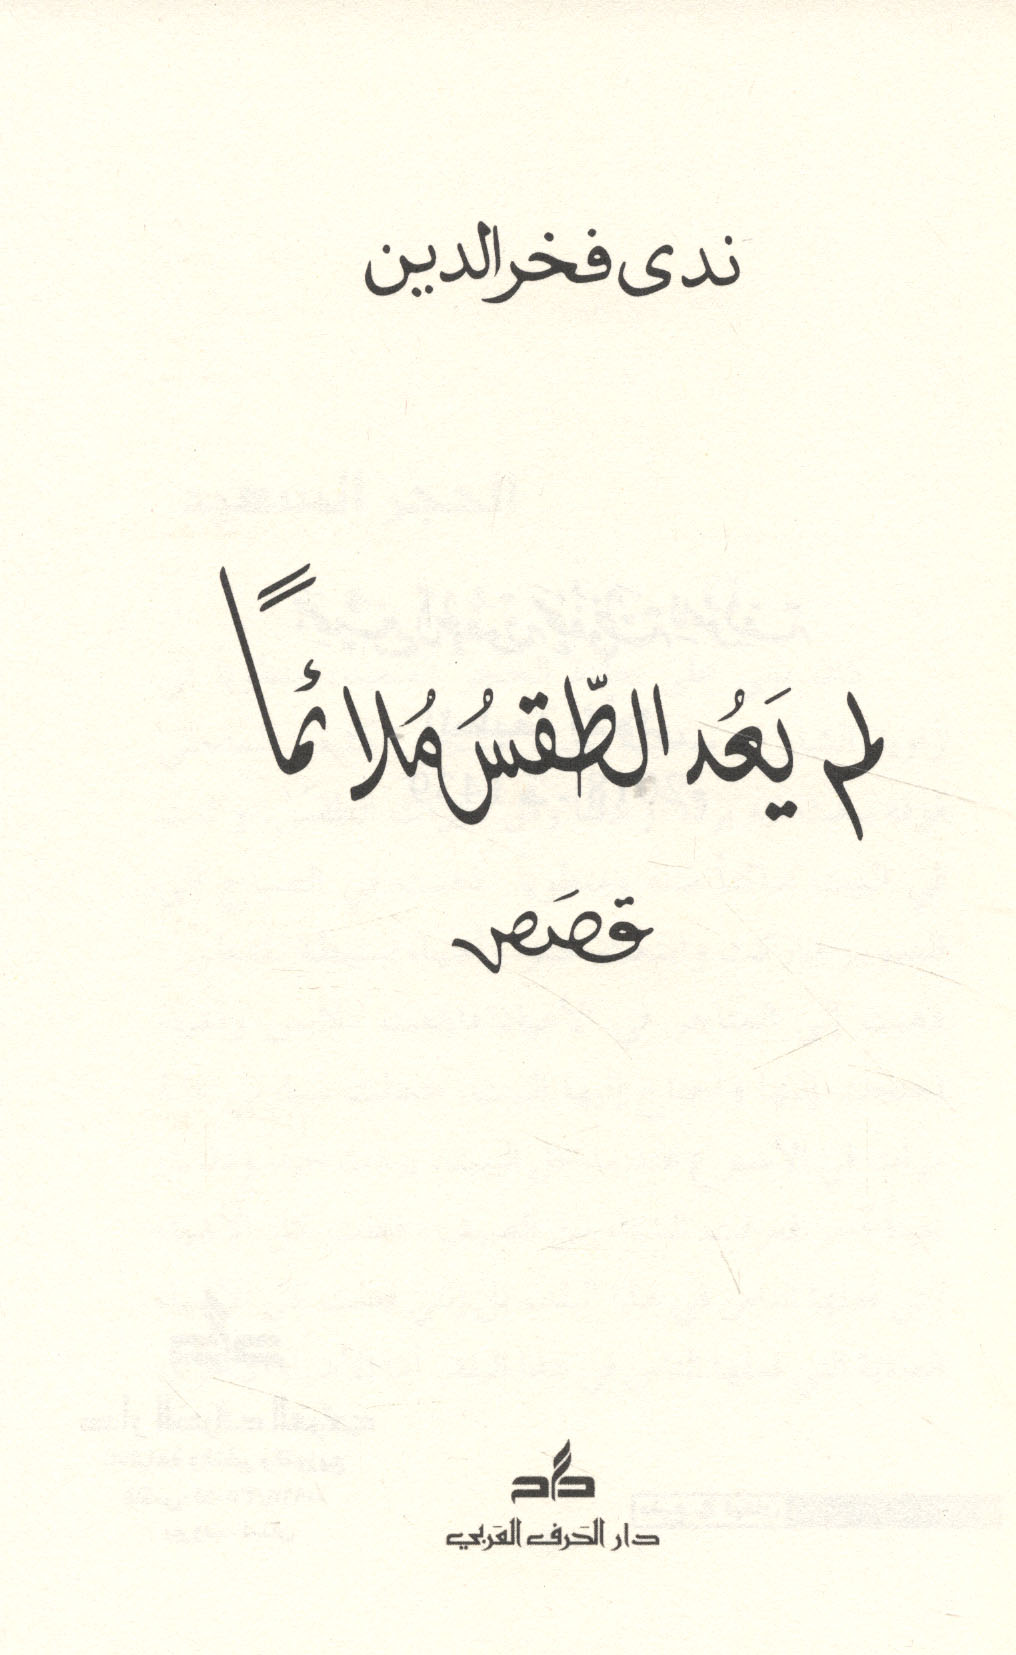 ندى فخر الدين
لم يَعُد الطّقسُ مُلائمًا
قصَص
دار الحَرف العَربي